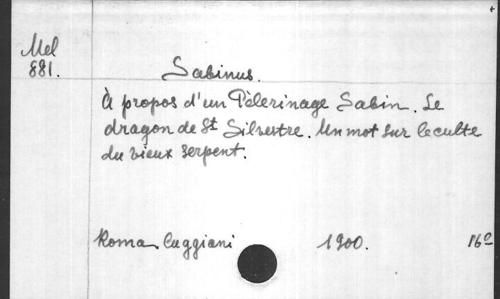 Mel
881.
Sabinus.
À propos d'un Pèlerinage Sabin. Le
dragon de St Silvestre. Un mot sur le culte
du vieux serpent.
Roma Cuggiani 1900. 16º